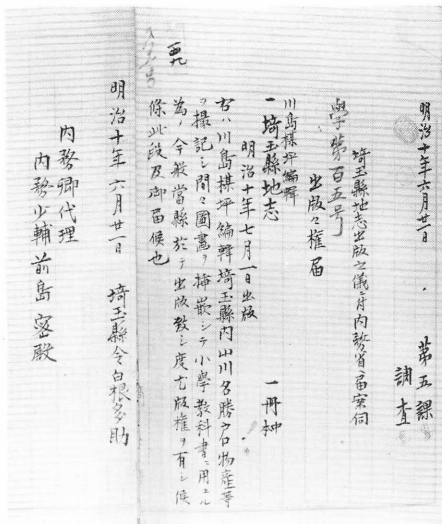 明治十年六月廿一日 第五課
調査
埼玉縣地志出版之儀ニ付内務省ヘ届案伺
學第百五号
出版々権届
川島楳坪編輯
一 埼玉縣地志 一冊
明治十年七月一日出版
右ハ川島楳坪編輯埼玉縣内山川名勝戸口物産等
ヲ撮記シ間々圖畫ヲ挿嵌シテ小學教科書ニ用エル
為メ今般當縣於テ出版致シ度尤版権ヲ有シ候
條此段及御届候也
明治十年六月廿一日 埼玉縣令白根多助
内務卿代理
内務少輔前島密殿